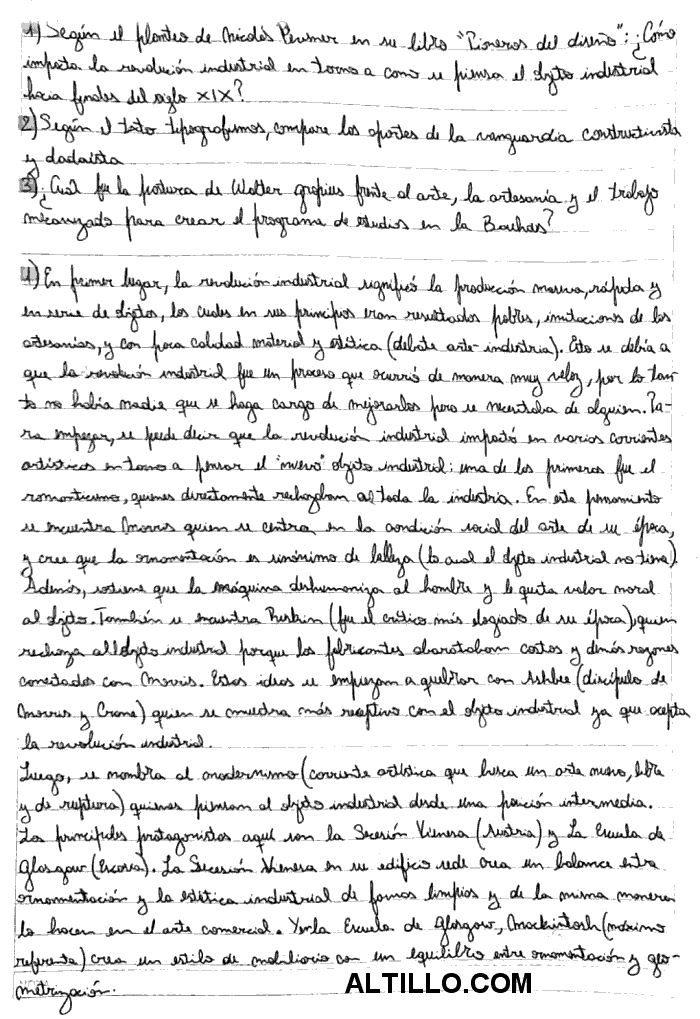 1) Según el planteo de Nicolás Pevsner en su libro "Pioneros del diseño": ¿Cómo
impacta la revolución industrial en torno a como se piensa el objeto industrial
hacia finales del siglo XIX?
2) Según el texto tipografismos, compare los aportes de la vanguardia constructivista
y dadaista
3) ¿Cuál fue la postura de Walter gropius frente al arte, la artesanía y el trabajo
mecanizado para crear el programa de estudios en la Bauhaus?
1) En primer lugar, la revolución industrial significó la producción masiva, rápida y
en serie de objetos, los cuales en sus principios eran resultados pobres, imitaciones de las
artesanías, y con poca calidad material y estética (debate arte-industria). Esto se debía a
que la revolución industrial fue un proceso que ocurrió de manera muy veloz, por lo tan-
to no había nadie que se haga cargo de mejorarlos pero se necesitaba de alguien. Pa-
ra empezar, se puede decir que la revolución industrial impactó en varias corrientes
artísticas en torno a pensar el "nuevo" objeto industrial: una de las primeras fue el
romanticismo, quienes directamente rechazaban a toda la industria. En este pensamiento
se encuentra Morris quien se centra en la condición social del arte de su época,
y cree que la ornamentación es sinónimo de belleza (lo cual el objeto industrial no tiene).
Además, sostiene que la máquina deshumaniza al hombre y le quita valor moral
al objeto. También se encuentra Ruskin (fue el crítico más elogiado de su época), quien
rechaza al objeto industrial porque los fabricantes abarataban costos y demás razones
conectadas con Morris. Estas ideas se empiezan a quebrar con Ashbee (discípulo de
Morris y Crane) quien se muestra más receptivo con el objeto industrial ya que acepta
la revolución industrial.
Luego, se nombra al modernismo (corriente artística que busca un arte nuevo, libre
y de ruptura) quienes piensan al objeto industrial desde una posición intermedia.
Los principales protagonistas aquí son la Secesión Vienesa (Austria) y La Escuela de
Glasgow (Escocia). La Secesión Vienesa en su edificio sede crea un balance entre
ornamentación y la estética industrial de formas limpias y de la misma manera
lo hacen en el arte comercial. Y en la Escuela de Glasgow, Mackintosh (máximo
referente) crea un estilo de mobiliario con un equilibrio entre ornamentación y geo-
metrización.
ALTILLO.COM